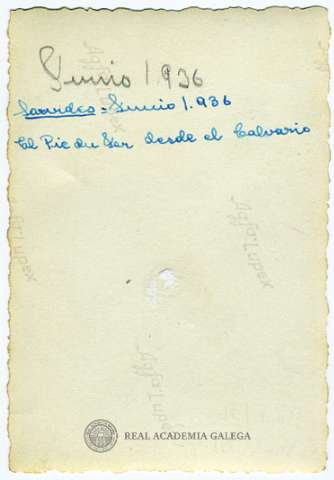 Junio 1.936
Lourdes = Junio 1.936
El Pic du Ger desde el Calvario
Agfa-Lupex
Agfa-Lupex
Agfa-Lupex
Agfa-Lupex
REAL ACADEMIA GALEGA